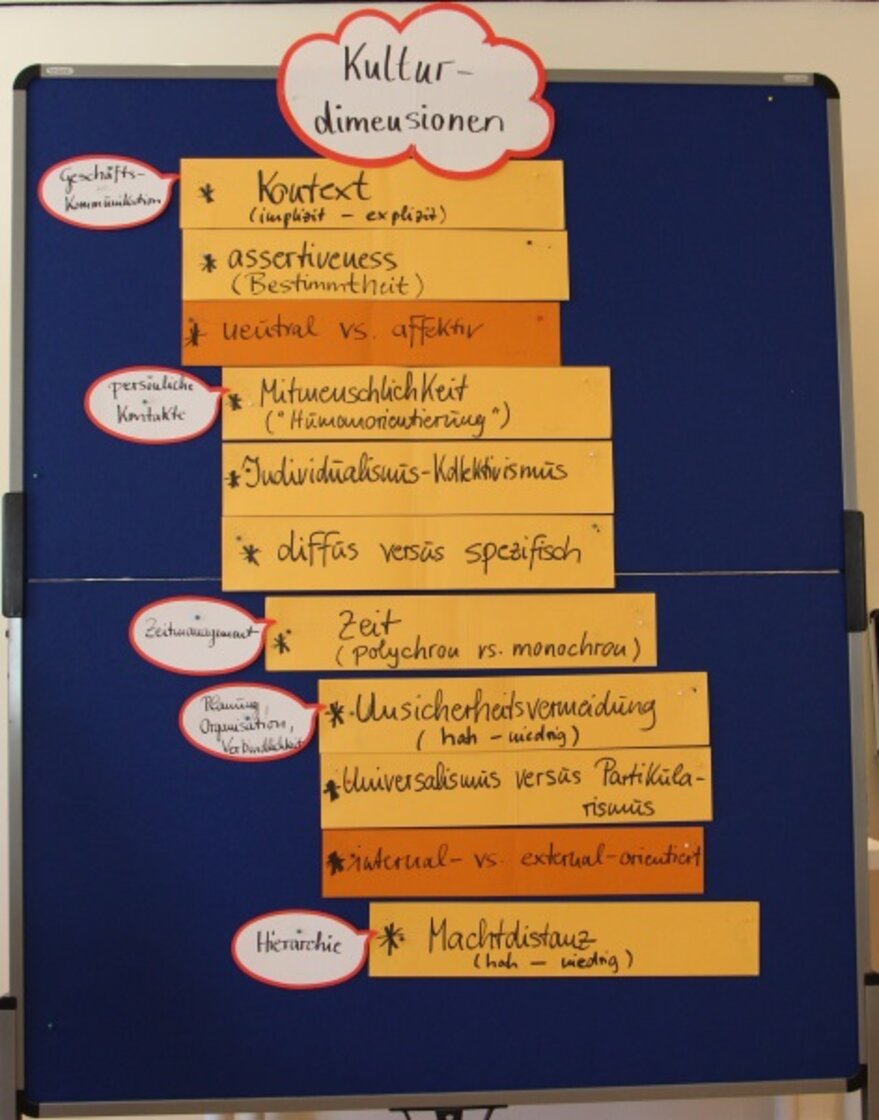 Kultur-
dimensionen
Geschäfts-
Kommunikation
* Kontext
(implizit - explizit)
* assertiveness
(Bestimmtheit)
* neutral vs. affektiv
persönliche
Kontakte
* Mitmenschlichkeit
("Humanorientierung")
* Individualismus-Kollektivismus
* diffus versus spezifisch
Zeitmanagement
* Zeit
(polychron vs. monochron)
Planung,
Organisation,
Verbindlichkeit
* Unsicherheitsvermeidung
(hoh - niedrig)
* Universalismus versus Partikula-
rismus
* internal- vs. external-orientiert
Hierarchie
* Machtdistanz
(hoh - niedrig)